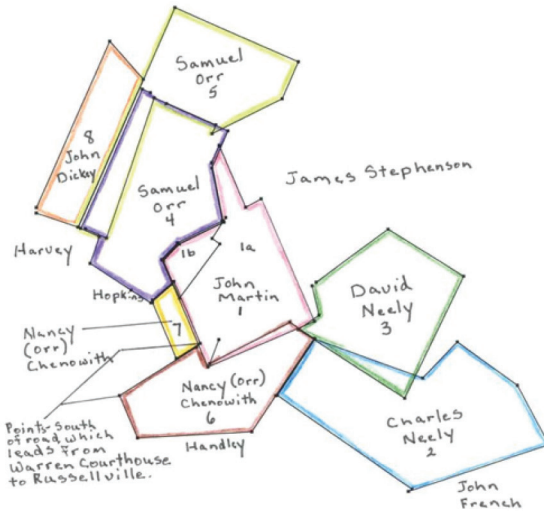 Samuel
Orr
5
8
John
Dickey
Samuel
Orr
4
James Stephenson
Harvey
1b
1a
Hopkins
John
Martin
1
David
Neely
3
Nancy
(Orr)
Chenowith
7
Nancy (Orr)
Chenowith
6
Handley
Charles
Neely
2
John
French
Points-South
of road which
leads From
Warren Courthouse
to Russellville.